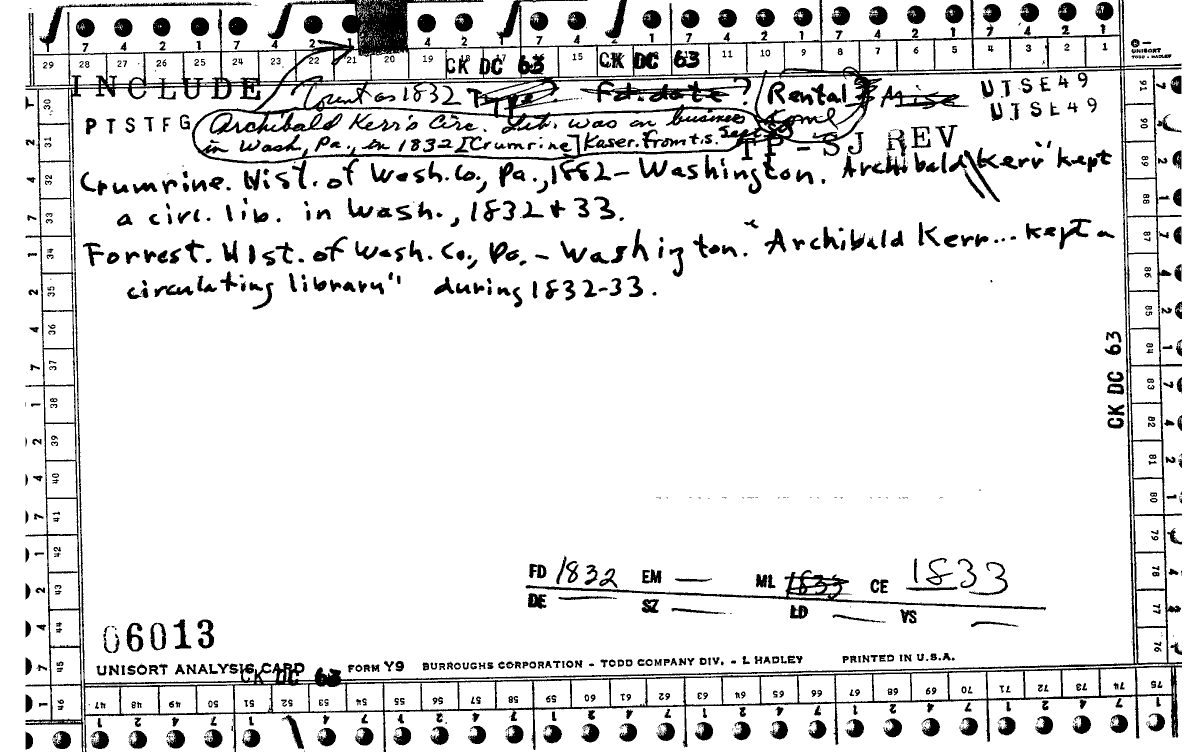 7 4 2 1 7 4 2 1 4 2 1 7 4 2 1 7 4 2 1 7 4 2 1 7 4 2 1
29 28 27 26 25 24 23 22 21 20 19 CK DC 63 15 CK DC 63 11 10 9 8 7 6 5 4 3 2 1
UNISORT
TODD - HADLEY
INCLUDE Count as 1832 Type? Fd. date? Rental UTSE49
UTSE49
PTSTFG Archibald Kerr's Circ. Lib. was in business
in Wash, Pa., in 1832 [Crumrine] Kaser. From t.s. TP-SJ REV
Crumrine. Hist. of Wash. Co., Pa., 1882 - Washington. Archibald Kerr "kept
a circ. lib. in Wash., 1832 + 33.
Forrest. Hist. of Wash. Co., Pa. - Washington. "Archibald Kerr... kept a
circulating library" during 1832-33.
CK DC 63
FD 1832 EM — ML 1833 CE 1833
DE — SZ — LD — VS —
06013
UNISORT ANALYSIS CARD CK DC 63 FORM Y9 BURROUGHS CORPORATION - TODD COMPANY DIV. - L HADLEY PRINTED IN U.S.A.
30 31 32 33 34 35 36 37 38 39 40 41 42 43 44 45 46
47 48 49 50 51 52 53 54 55 56 57 58 59 60 61 62 63 64 65 66 67 68 69 70 71 72 73 74 75
91 90 89 88 87 86 85 84 83 82 81 80 79 78 77 76